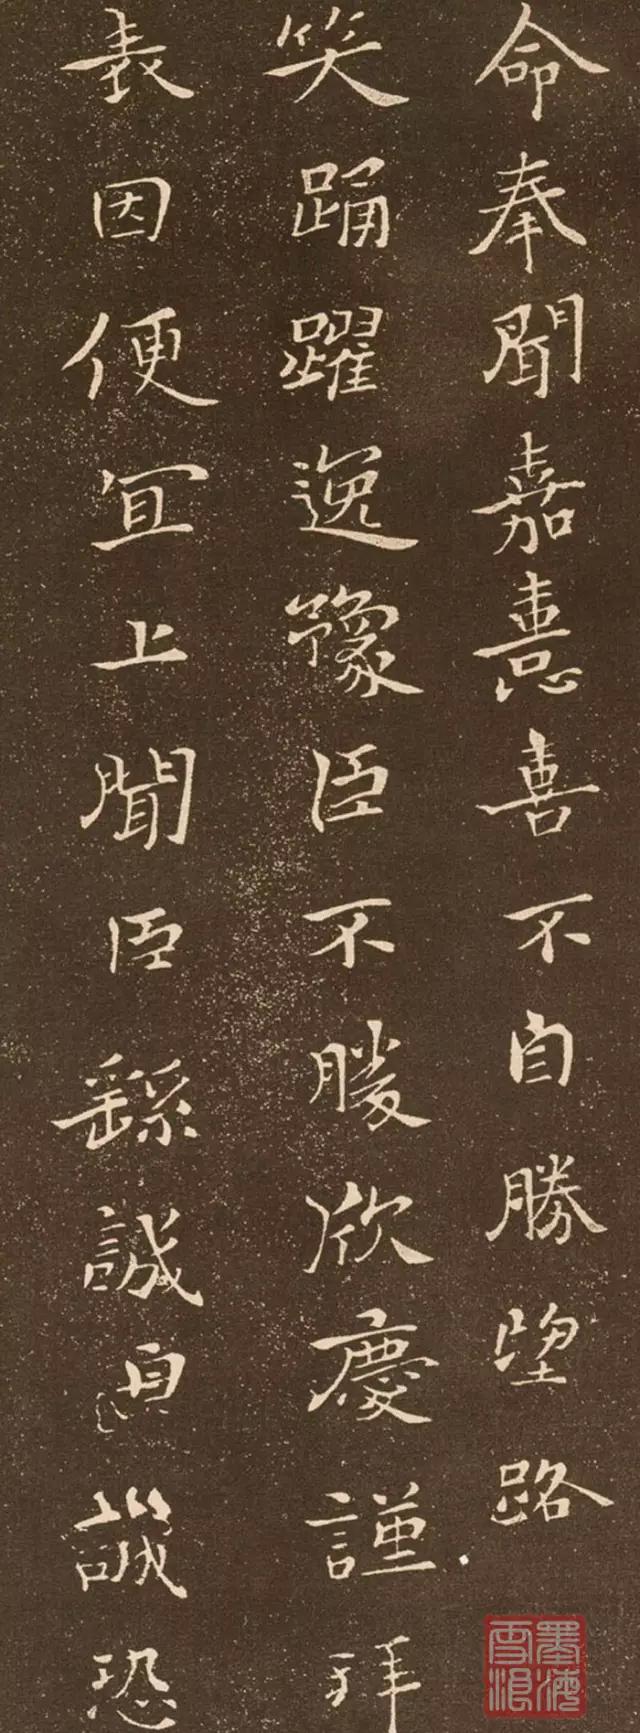 命奉聞嘉憙喜不自勝望路
笑踊躍逸豫臣不勝欣慶謹拜
表因便冝上聞臣繇誠誠恐
墨海雪浪